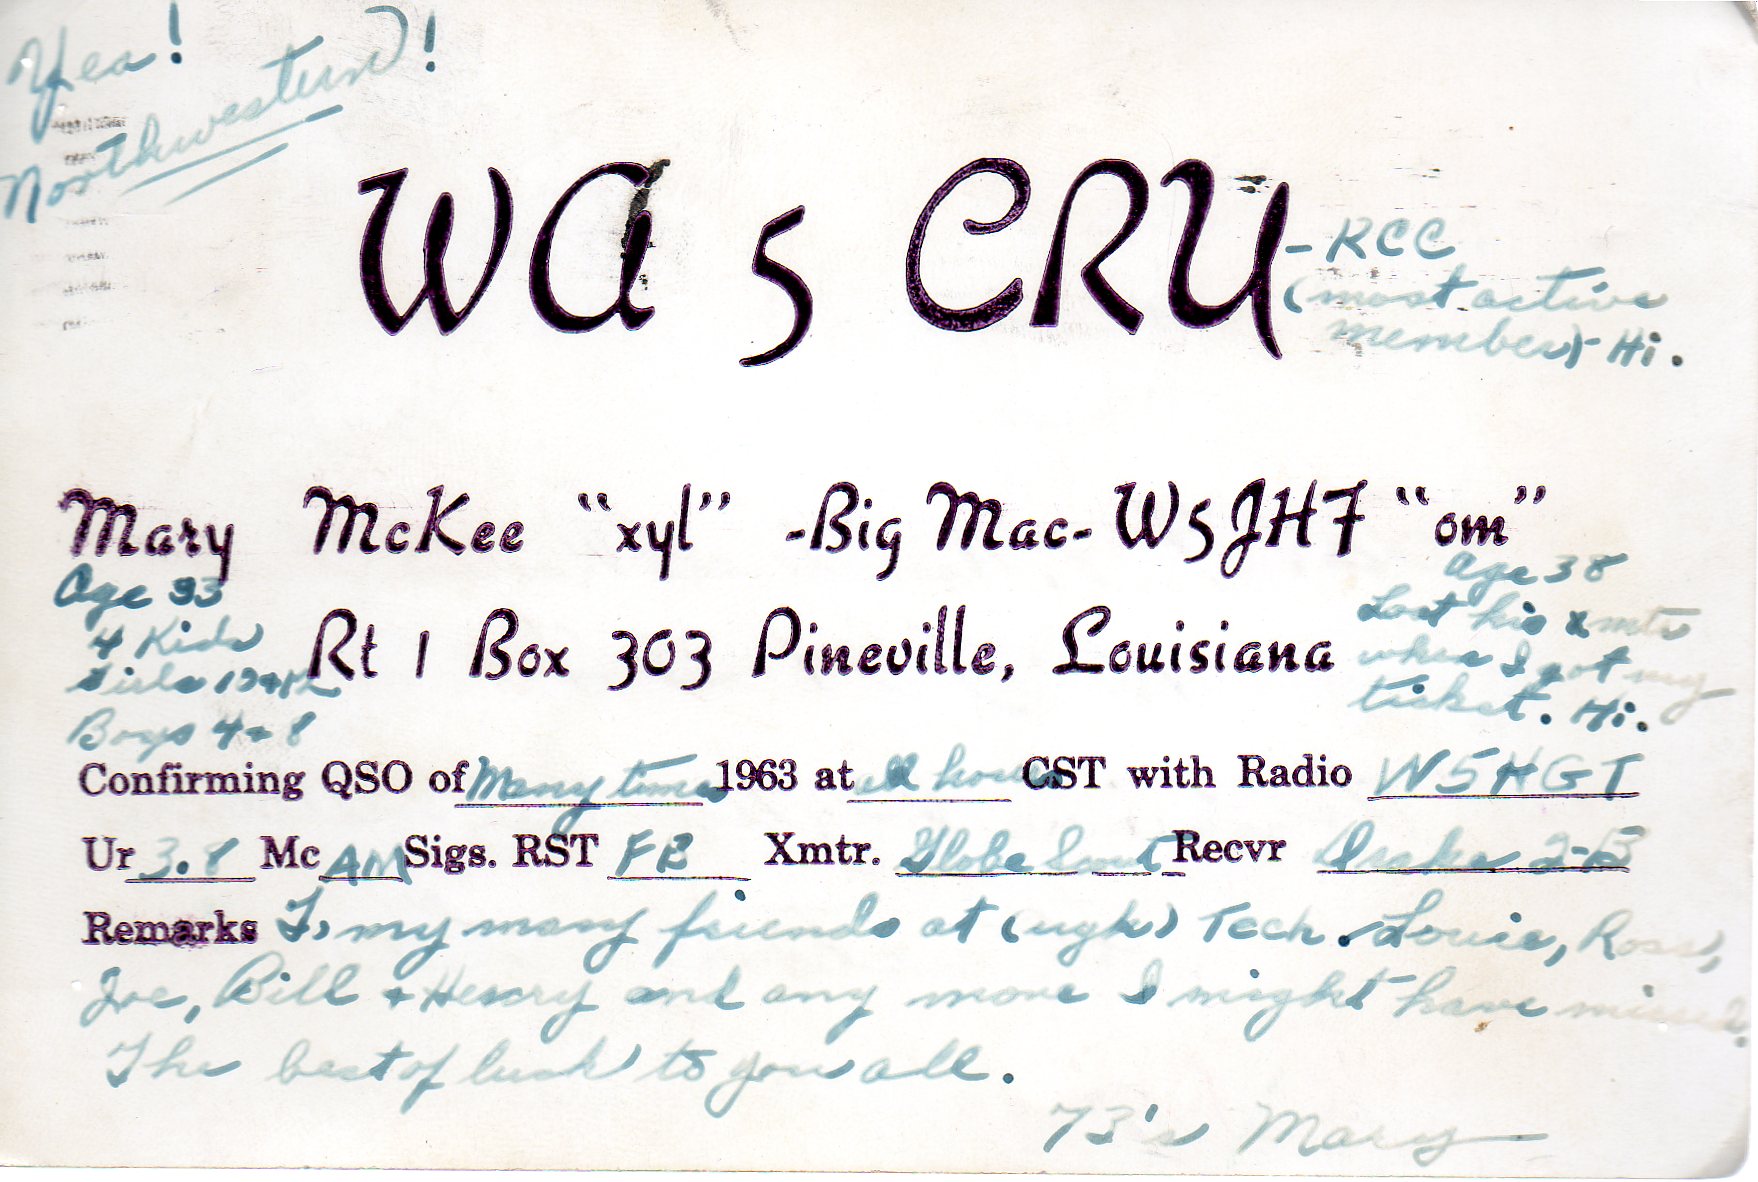 Yea!
Northwestern!
WA 5 CRU
- RCC
(most active
member) - Hi.
Mary McKee "xyl" -Big Mac- W5JHF "om"
Age 33
4 Kids
Girls 12
Boys 4 + 8
Age 38
Lost his xmtr
when I got my
ticket. Hi.
Rt 1 Box 303 Pineville, Louisiana
Confirming QSO of Many times 1963 at all hours CST with Radio W5HGT
Ur 3.8 Mc AM Sigs. RST FB Xmtr. Globe Scout Recvr Drake 2-B
Remarks To my many friends at (ugh) Tech. Louie, Ross,
Joe, Bill + Henry and any more I might have missed.
The best of luck to you all.
73's Mary